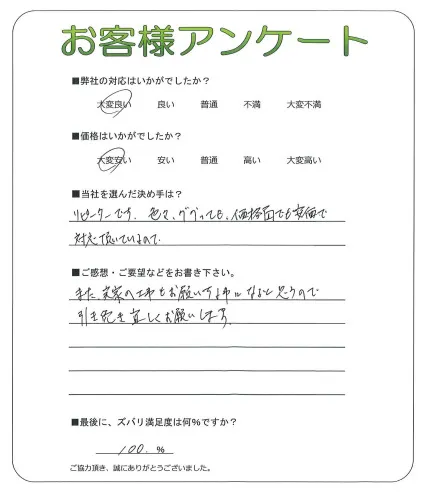 お客様アンケート
■弊社の対応はいかがでしたか？
大変良い 良い 普通 不満 大変不満
■価格はいかがでしたか？
大変安い 安い 普通 高い 大変高い
■当社を選んだ決め手は？
リピーターです。色々、ググっても、価格面でも安価で
対応頂いているので。
■ご感想・ご要望などをお書き下さい。
また、実家の工事もお願いする事になると思うので
引き続き宜しくお願いします。
■最後に、ズバリ満足度は何％ですか？
100. ％
ご協力頂き、誠にありがとうございました。